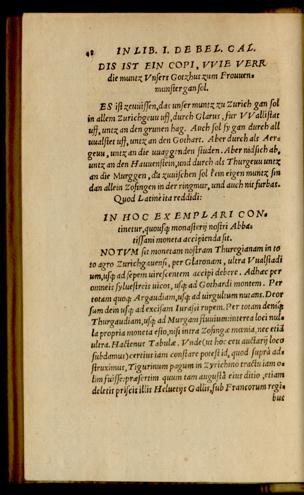 48 IN LIB. I. DE BEL. GAL.
DIS IST EIN COPI, VVIE VERR
die muntz Vnsers Gotzhus zum Frouuen-
munster gan sol.
ES ist zeuuissen, das unser muntz zu Zurich gan sol
in allem Zurichgeuu uff, durch Glarus, fur VVallistat
uff, untz an den grunen hag. Auch sol sy gan durch all
uualstet uff, untz an den Gothart. Aber durch als Aer-
geuu, untz an die uuaggenden studen. Aber nidsich ab,
untz an den Hauuenstein, und durch als Thurgeuu untz
an die Murggen, da zuuischen sol kein eigen muntz sin
dan allein Zofingen in der ringmur, und auch nit furbas.
Quod Latine ita reddidi:
IN HOC EXEMPLARI CON-
tinetur, quousq; monasterij nostri Abba-
tissani moneta accipienda sit.
NOTVM sit monetam nostram Thuregianam in to
to agro Zurichgauensi, per Glaronam, ultra Vualstadi
um, usq; ad sepem uirescentem accipi debere. Adhæc per
omneis syluestreis uicos, usq; ad Gothardi montem. Per
totam quoq; Argaudiam, usq; ad uirgultum nutans. Deor
sum dein usq; ad excisam Iurassi rupem. Per totam deniq;
Thurgaudiam, usq; ad Murgam fluuium: interea loci nul-
la propria moneta esto, nisi intra Zofingæ mœnia, nec etiã
ultra. Hactenus Tabulæ. Vnde (ut hoc ceu auctarij loco
subdamus) certius iam constare potest id, quod suprà ad-
struximus, Tigurinum pagum in Zyrichino tractu iam o-
lim fuisse: præsertim quum tam augusta eius ditio, etiam
deletis priscis illis Heluetijs Gallis, sub Francorum regi-
bus